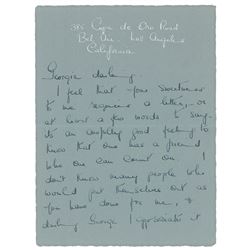 385 Copa de Oro Road
Bel Air. Los Angeles
California
Georgia darling.
I feel that your sweetness
to me requires a letter, - or
at least a few words to say.
Its an awfully good feeling to
know that one has a friend
who one can count on. I
don't know many people who
would put themselves out as
you have done for me, &
darling George I appreciate it